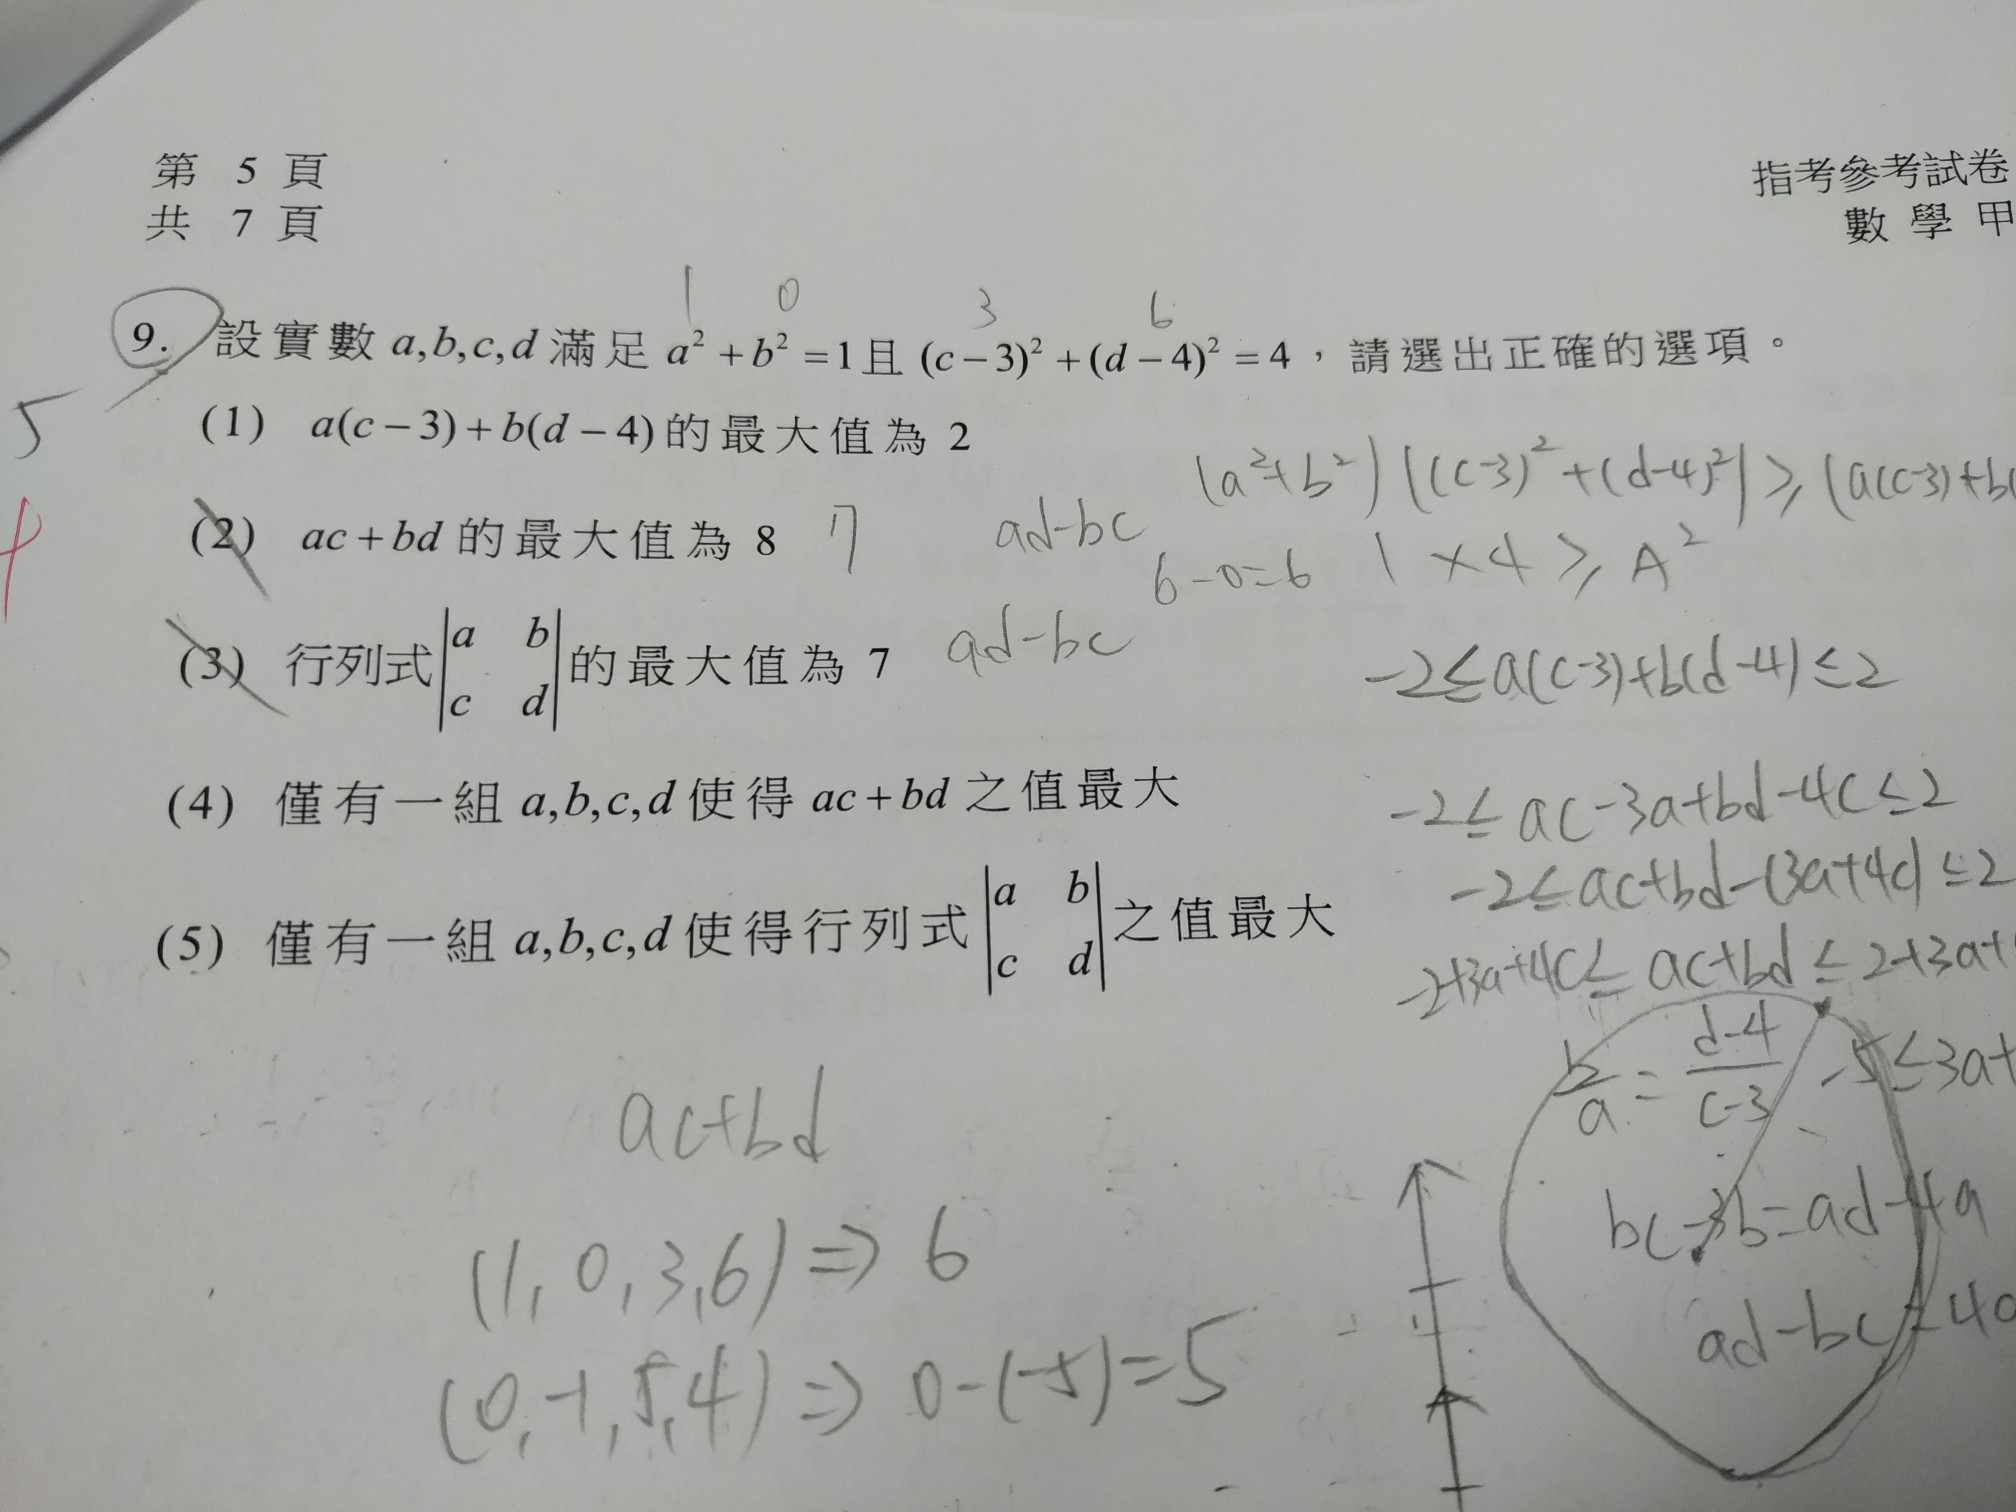 第 5 頁
共 7 頁
指考參考試卷
數學甲
1 0 3 6
9. 設實數 a,b,c,d 滿足 a² + b² = 1 且 (c − 3)² + (d − 4)² = 4，請選出正確的選項。
5
(1) a(c − 3) + b(d − 4) 的最大值為 2
(a²+b²)((c-3)²+(d-4)²) ≥ (a(c-3)+b(
(2) ac + bd 的最大值為 8 7
ad-bc
6-0=6
1 × 4 ≥ A²
(3) 行列式 |a b; c d| 的最大值為 7
ad-bc
-2≤a(c-3)+b(d-4)≤2
(4) 僅有一組 a,b,c,d 使得 ac + bd 之值最大
-2≤ac-3a+bd-4c≤2
-2≤ac+bd-(3a+4c)≤2
(5) 僅有一組 a,b,c,d 使得行列式 |a b; c d| 之值最大
-2+3a+4c≤ac+bd≤2+3a+
b/a = (d-4)/(c-3)
-5≤3a+
ac+bd
bc-3b=ad-4a
(1,0,3,6)⇒6
ad-bc=4a
(0,-1,5,4)⇒0-(-5)=5